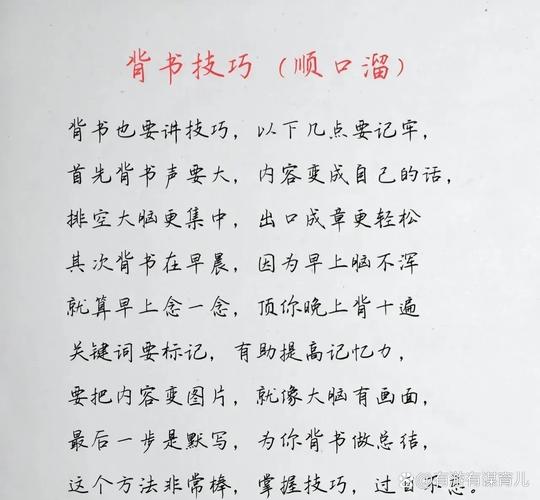 背书技巧（顺口溜）
背书也要讲技巧，以下几点要记牢，
首先背书声要大，内容变成自己的话，
排空大脑更集中，出口成章更轻松
其次背书在早晨，因为早上脑不浑
就算早上念一念，顶你晚上背十遍
关键词要标记，有助提高记忆力，
要把内容变图片，就像大脑有画面，
最后一步是默写，为你背书做总结，
这个方法非常棒，掌握技巧，过目不忘。